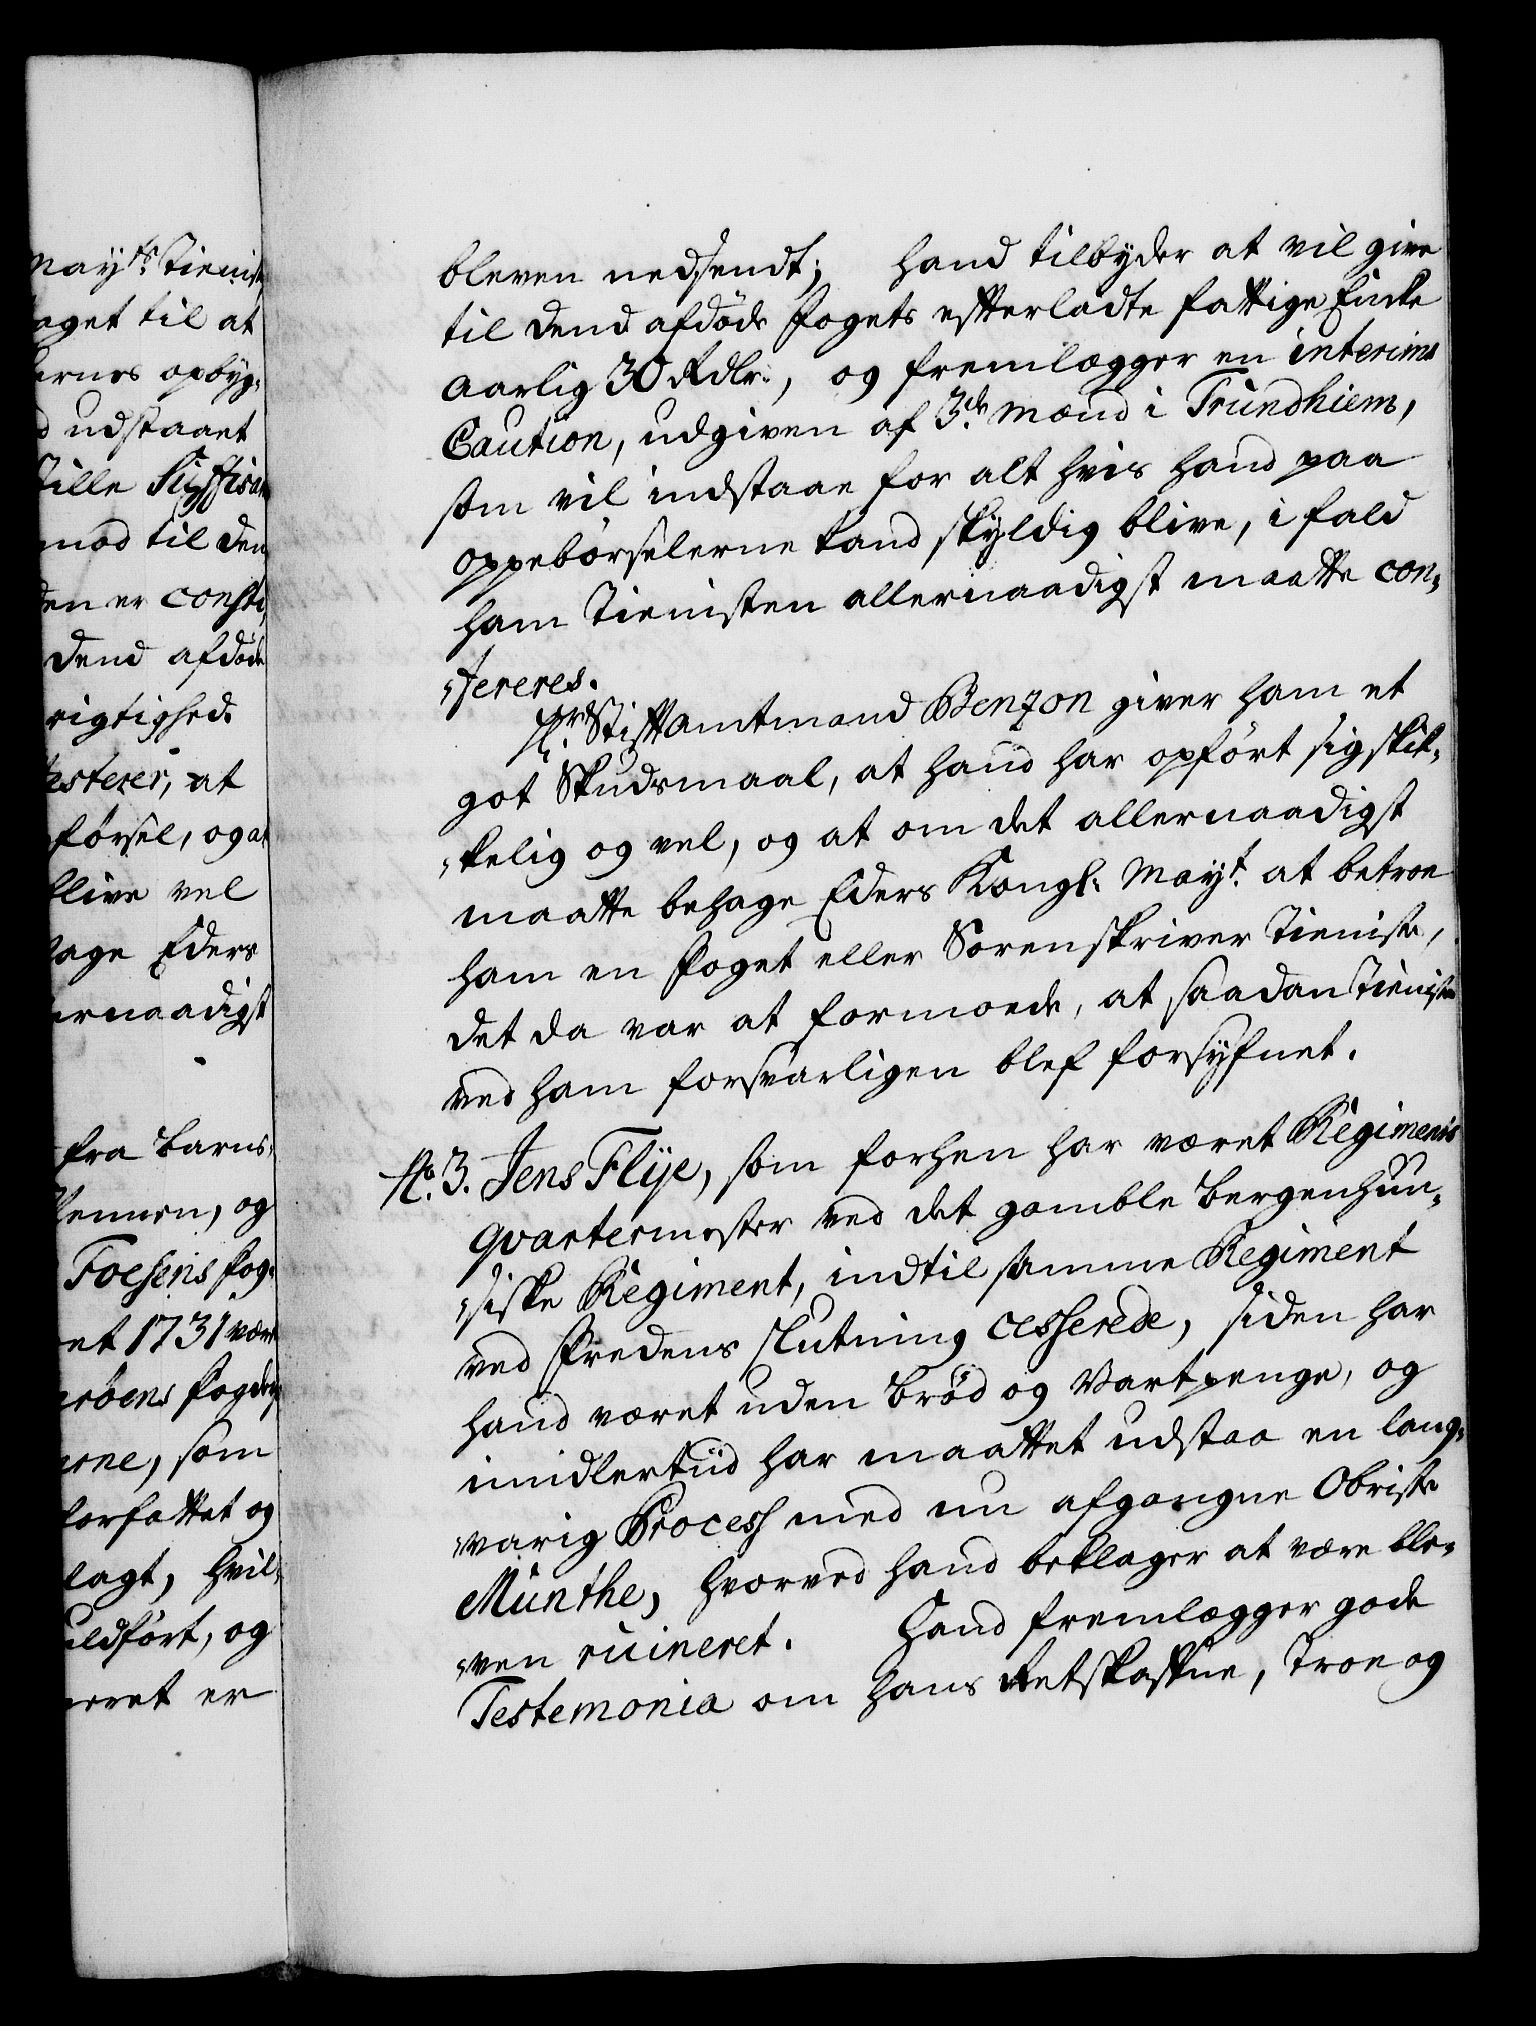 May.ts Tienist
oget til at
ernes opbyg,
d udstaaet
mod til den
en er consti,
dend afdøde
rigtighed.
esterer, at
førsel, og at
blive vel
age Eders
ernaadigst
fra Barns,
og
Foesens Fog,
et 1731 være
som
forfattet og
lagt, hvil,
uldført, og
er
bleven nedsendt; hand tilbyder at vil give
til dend afdøde Fogets efterladte fattige Encke
aarlig 30 Rdlr:, og fremlægger en interims
Caution, udgiven af 3de mænd i Trundhiem,
som vil indstaae for alt hvis hand paa
oppebørselerne kand skyldig blive, i fald
ham Tienisten allernaadigst maatte con,
,fereres.
Hr. Stiftamtmand Benzon giver ham et
got Skudsmaal, at hand har opført sig skik,
,kelig og vel, og at om det allernaadigst
maatte behage Eders Kongl: May.t at betroe
ham en Foget eller Sorenskriver Tieniste,
det da var at formoede, at saadan Tieniste
ved ham forsvarligen blef forsyfnet.
No. 3. Jens Flye, som forhen har været Regiments
qvartermester ved det gamble Bergenhuu,
,siske Regiment, indtil samme Regiment
ved Fredens slutning cesserede, siden har
hand været uden Brød og Vartpenge, og
imidlertiid har maattet udstaa en lang,
,varig Process med nu afgangne Obriste
Munthe, hvorved hand beklager at være ble,
,ven ruineret. Hand fremlægger gode
Testemonia om hans Retskafne, Troe og